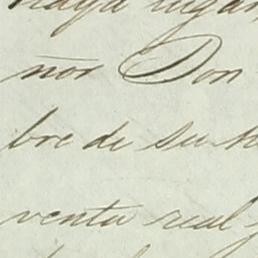 haya lugar
ñor Don
bre de su h
venta real y